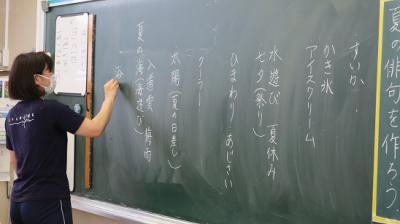 夏の俳句を作ろう
すいか
かき氷
アイスクリーム
水遊び 夏休み
七夕(祭り)
ひまわり あじさい
クーラー
太陽(夏の日差し)
夏の海(海遊び)
入道雲 梅雨
浴